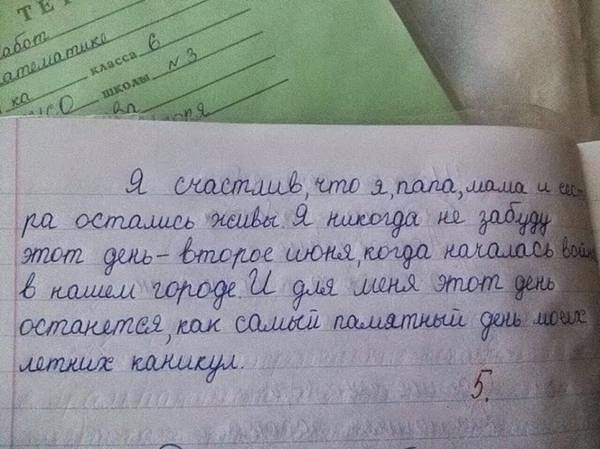 ТЕТ
работ
математике
класса 6
школы № 3
Я счастлив, что я, папа, мама и сест-
ра остались живы. Я никогда не забуду
этот день – второе июня, когда началась война
в нашем городе. И для меня этот день
останется, как самый памятный день моих
летних каникул.
5.